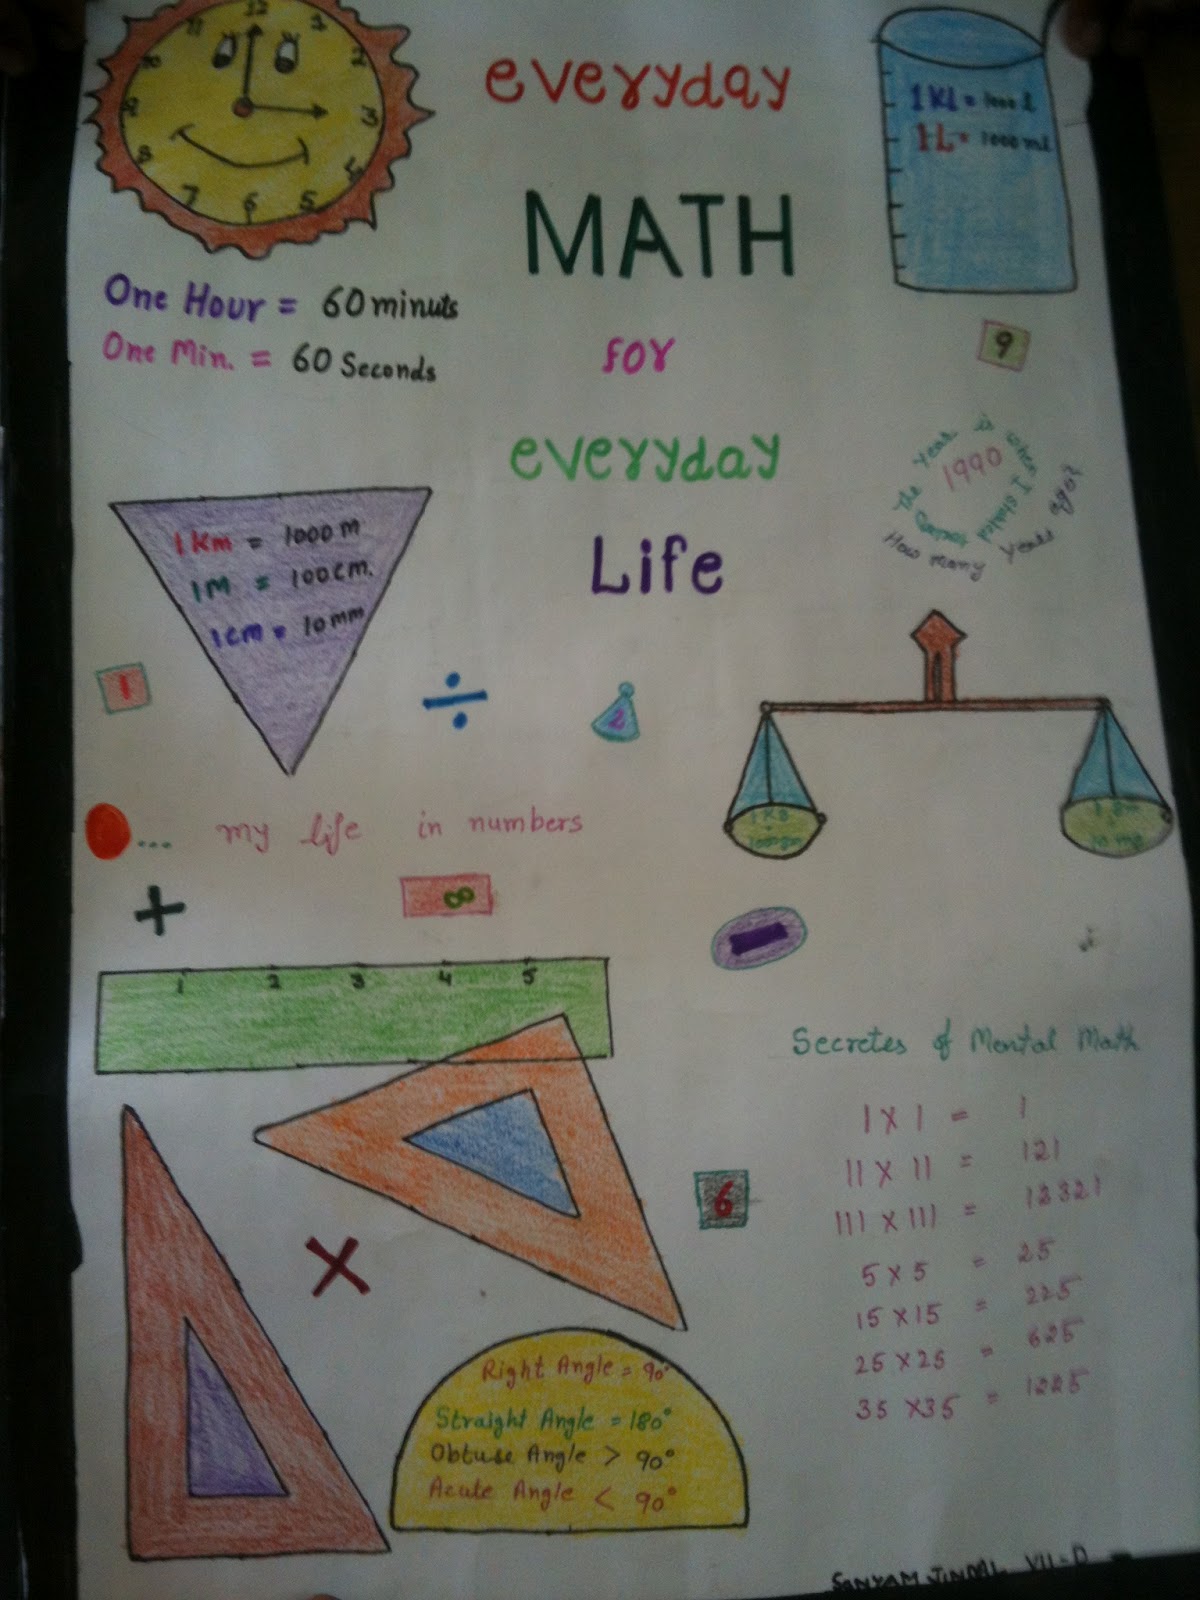 12
1
2
3
4
5
6
7
8
9
10
11
everyday
MATH
for
everyday
Life
1 KL = 1000 l
1 L = 1000 ml
One Hour = 60 minuts
One Min. = 60 Seconds
9
The year is when I started
1990
How many years ago?
1 Km = 1000 m
1 M = 100 cm.
1 cm = 10 mm
1
÷
2
... my life in numbers
+
8
-
1 2 3 4 5
Secretes of Mental Math
1 X 1 = 1
11 X 11 = 121
111 X 111 = 12321
5 X 5 = 25
15 X 15 = 225
25 X 25 = 625
35 X 35 = 1225
6
×
Right Angle = 90°
Straight Angle = 180°
Obtuse Angle > 90°
Acute Angle < 90°
SANYAM VII-D